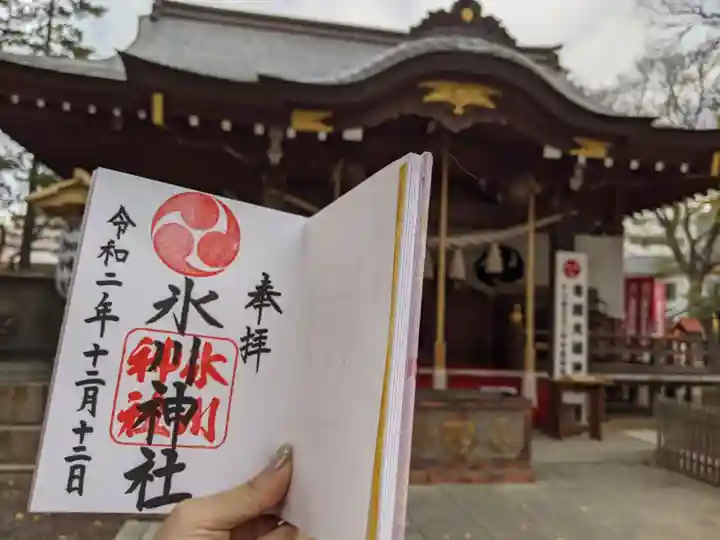 奉拝
氷川神社
氷川神社
令和二年十二月十二日